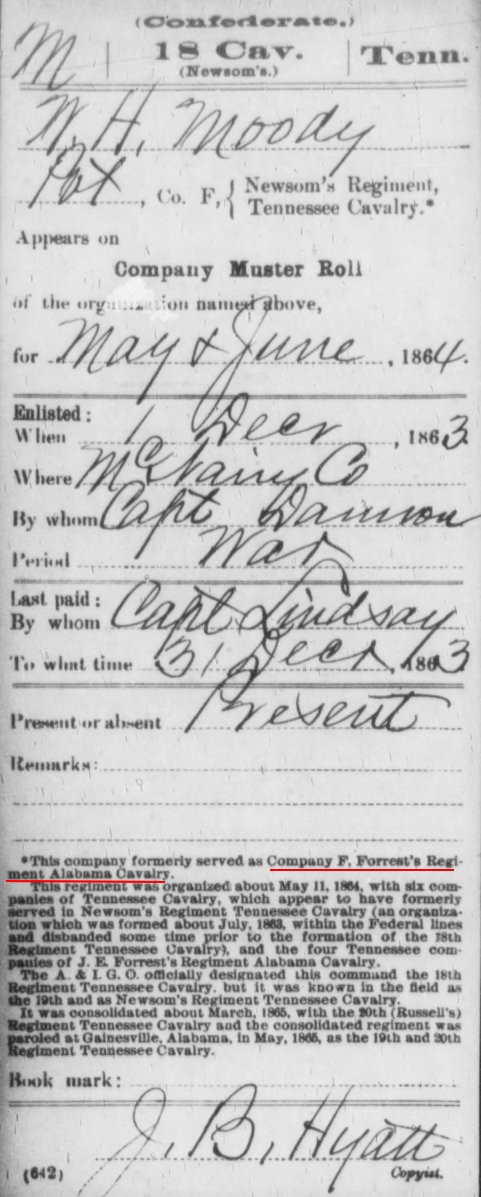 (Confederate.)
M | 18 Cav. | Tenn.
(Newsom's.)
W. H. Moody
Pvt, Co. F, { Newsom's Regiment,
Tennessee Cavalry.*
Appears on
Company Muster Roll
of the organization named above,
for May & June, 1864.
Enlisted:
When 1 Decr, 1863
Where McNairy Co
By whom Capt Damron
Period War
Last paid:
By whom Capt Lindsay
To what time 31 Decr, 1863
Present or absent Present
Remarks:
*This company formerly served as Company F, Forrest's Regi-
ment Alabama Cavalry.
This regiment was organized about May 11, 1864, with six com-
panies of Tennessee Cavalry, which appear to have formerly
served in Newsom's Regiment Tennessee Cavalry (an organiza-
tion which was formed about July, 1863, within the Federal lines
and disbanded some time prior to the formation of the 18th
Regiment Tennessee Cavalry), and the four Tennessee com-
panies of J. E. Forrest's Regiment Alabama Cavalry.
The A. & I. G. O. officially designated this command the 18th
Regiment Tennessee Cavalry, but it was known in the field as
the 19th and as Newsom's Regiment Tennessee Cavalry.
It was consolidated about March, 1865, with the 20th (Russell's)
Regiment Tennessee Cavalry and the consolidated regiment was
paroled at Gainesville, Alabama, in May, 1865, as the 19th and 20th
Regiment Tennessee Cavalry.
Book mark:
J. B. Hyatt
(642) Copyist.